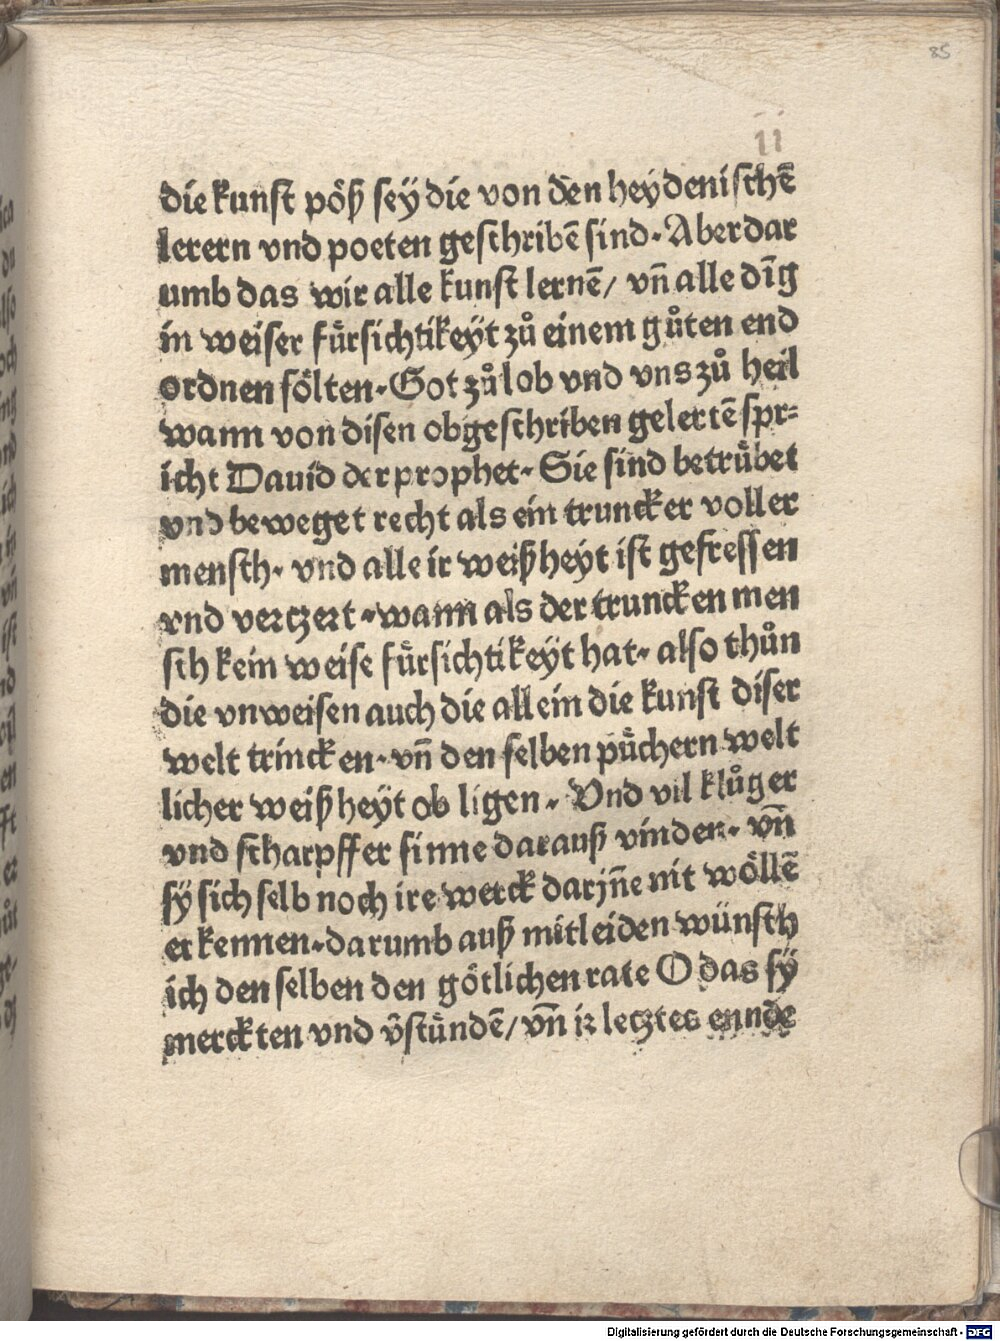 85
ii
die kunst pöß sey die von den heydenischē
lerern vnd poeten geschribē sind. Aber dar
umb das wir alle kunst lernē/ vn̄ alle dīg
in weiser fürsichtikeÿt zů einem gůten end
ordnen sölten. Got zů lob vnd vns zů heil
wann von disen obgeschriben gelertē spr⸗
icht Dauid der prophet. Sie sind betrübet
vnd beweget recht als ein truncker voller
mensch. vnd alle ir weißheÿt ist gefressen
vnd verczert. wann als der truncken men
sch kein weise fürsichtikeÿt hat. also thůn
die vnweisen auch die allein die kunst diser
welt trincken. vn̄ den selben püchern welt
licher weißheÿt ob ligen. Vnd vil klůger
vnd scharpffer sinne darauß vinden. vn̄
sÿ sich selb noch ire werck darjn̄e nit wöllē
erkennen. darumb auß mitleiden wünsch
ich den selben den götlichen rate O das sÿ
merckten vnd v̄stündē/ vn̄ ir lecztes ennde
Digitalisierung gefördert durch die Deutsche Forschungsgemeinschaft - DFG